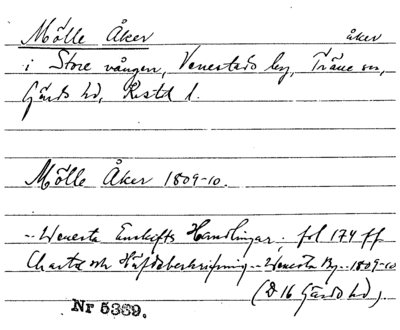 Mölle Åker åker
i Store vången, Venestads by, Träne sn,
Gärds hd, Kristd l.
Mölle Åker 1809-10.
--Wenesta Enskifts Handlingar, fol 174 ff.
Charta och Häfdabeskrifning--Wenesta By--1809-10
(D 16 Gärds hd).
Nr 5339.